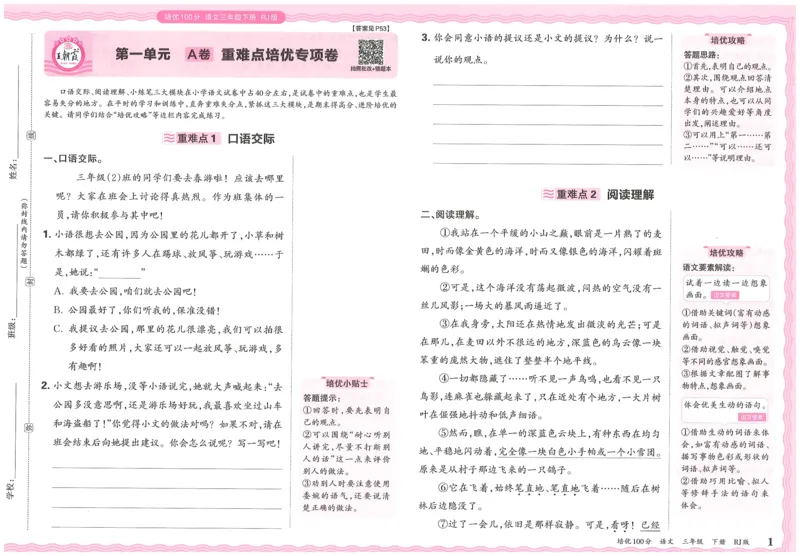 培优100分 语文三年级下册 RJ版
【答案见P53】
王朝霞
第一单元 A卷 重难点培优专项卷
扫码批改+错题本
口语交际、阅读理解、小练笔三大模块在小学语文试卷中占40分左右,是试卷中的重难点,也是学生最
容易失分的地方。在平时的学习和训练中,直奔重难失分点,紧抓这三大模块,是期末得高分、进阶培优的
关键。请同学们结合“培优攻略”等边栏内容完成练习。
重难点1 口语交际
一、口语交际。
三年级(2)班的同学们要去春游啦!应该去哪里
呢?大家在班会上讨论得真热烈。作为班集体的一
员,请你积极参与其中吧!
1. 小语很想去公园,因为公园里的花儿都开了,小草和树
木都绿了,还有许多人在踢球、放风筝、玩游戏……于
是,她说:“________”
A. 我要去公园,咱们就去公园吧!
B. 公园最好了,你们听我的,保准没错!
C. 我提议去公园,那里的花儿很漂亮,我们可以拍很
多好看的照片,大家还可以一起放风筝、玩游戏,多
有趣啊!
2. 小文想去游乐场,没等小语说完,她就大声喊起来:“去
公园多没意思啊,还是游乐场好玩,我最喜欢坐过山车
和海盗船了!”你觉得小文的做法对吗?如果不对,请在
班会结束后向她提出建议。你会怎么说呢?写一写吧!
培优小贴士
答题提示:
①回答时,要先表明自
己的观点。
②可以围绕“耐心听别
人讲完,尽量不打断别
人的话”这一点来评价
别人的做法。
③劝别人时要注意使用
委婉的语气,还要说清
楚正确的做法。
姓名:
班级:
学校:
(弥封线内请勿答题)
线
封
弥
3. 你会同意小语的提议还是小文的提议?为什么?说一
说你的观点。
培优攻略
答题思路:
①首先,表明自己的观点。
②其次,围绕观点回答清
楚理由。可以介绍地点
本身的特点,也可以从同
学们的兴趣爱好等角度
出发,阐述理由。
③可以用上“第一……第
二……”“可以……还可
以……”等说明理由。
重难点2 阅读理解
二、阅读理解。
①我站在一个平缓的小山之巅,眼前是一片熟了的麦
田,时而像金黄色的海洋,时而又像银色的海洋,闪耀着斑
斓的色彩。
②可是,这个海洋没有荡起微波,闷热的空气没有一
丝儿风影;一场大的暴风雨逼近了。
③在我身旁,太阳还在热情地发出微淡的光芒;可是
在那儿,在麦田以外不很远的地方,深蓝色的乌云像一块
笨重的庞然大物,遮住了整整半个地平线。
④一切都隐藏了……听不见一声鸟鸣,也看不见一只
鸟影,连麻雀也躲藏起来了,只在近处有个地方,一大片树
叶在倔强地抖动和低声细语。
⑤然而,瞧,在单一的深蓝色云块上,有种东西在均匀
地、平稳地闪动着,完全像一块白色小手帕或一个小雪团。
原来是从村子那边飞来的一只鸽子。
⑥它在飞着,始终笔直地、笔直地飞着……随后在树
林后边隐没了。
⑦过了一会儿,依旧是那样寂静。可是,看呀!已经
培优攻略
语文要素解读:
试着一边读一边想象
画面。语文要素
①借助关键词(富有动感
的词语、拟声词等)想象
画面。
②借助视觉、触觉、嗅觉
等不同的感官想象画面。
③根据文章配图了解事
物特点,想象画面。
体会优美生动的语句。
语文要素
①借助生动的词语来体
会,如富有动感的词语、
描写事物色彩或形状的
词语、拟声词等。
②借助巧用比喻、拟人
等修辞手法的语句来
体会。
培优100分 语文 三年级 下册 RJ版 1